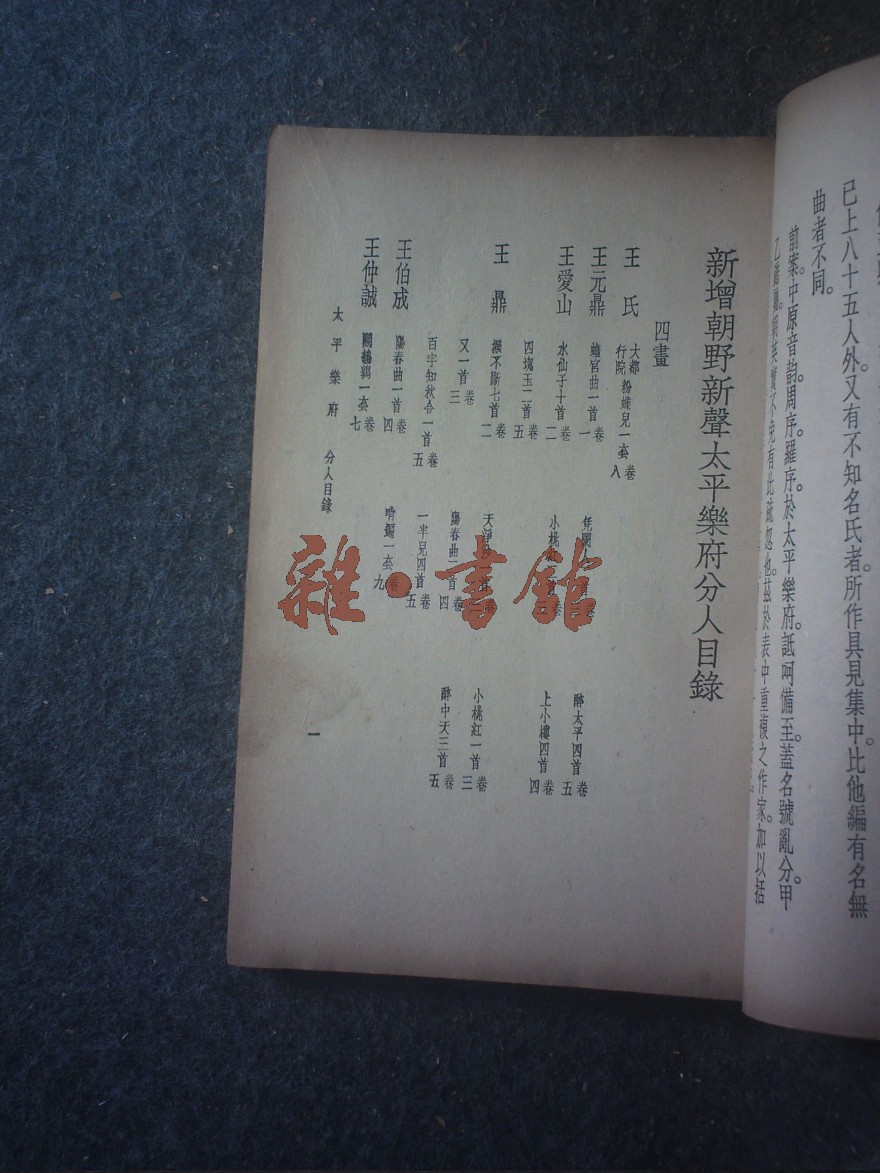 已上八十五人外。又有不知名氏者。所作具見集中。比他編有名無
曲者不同。
前案。中原音韵。周序羅序。於太平樂府。詆呵備至。蓋名號亂分甲
不免有此疏忽也。茲於表中重複之作家。加以括
新增朝野新聲太平樂府分人目錄
四畫
王氏 大都行院 粉蝶兒一套卷八
王元鼎 曲一首卷一 醉太平四首卷五
王愛山 水仙子十首卷二 小桃紅 上小樓四首卷四
四塊玉二首卷五
王鼎 撥不斷七首卷二 小桃紅一首卷三
又一首卷三 陽春曲 首卷四 醉中天三首卷五
百字知秋令一首卷五 一半兒四首卷五
王伯成 陽春曲一首卷四 哨遍一套卷九
王仲誠 鬬鵪鶉一套卷七
太平樂府 分人目錄
一
雜·書館